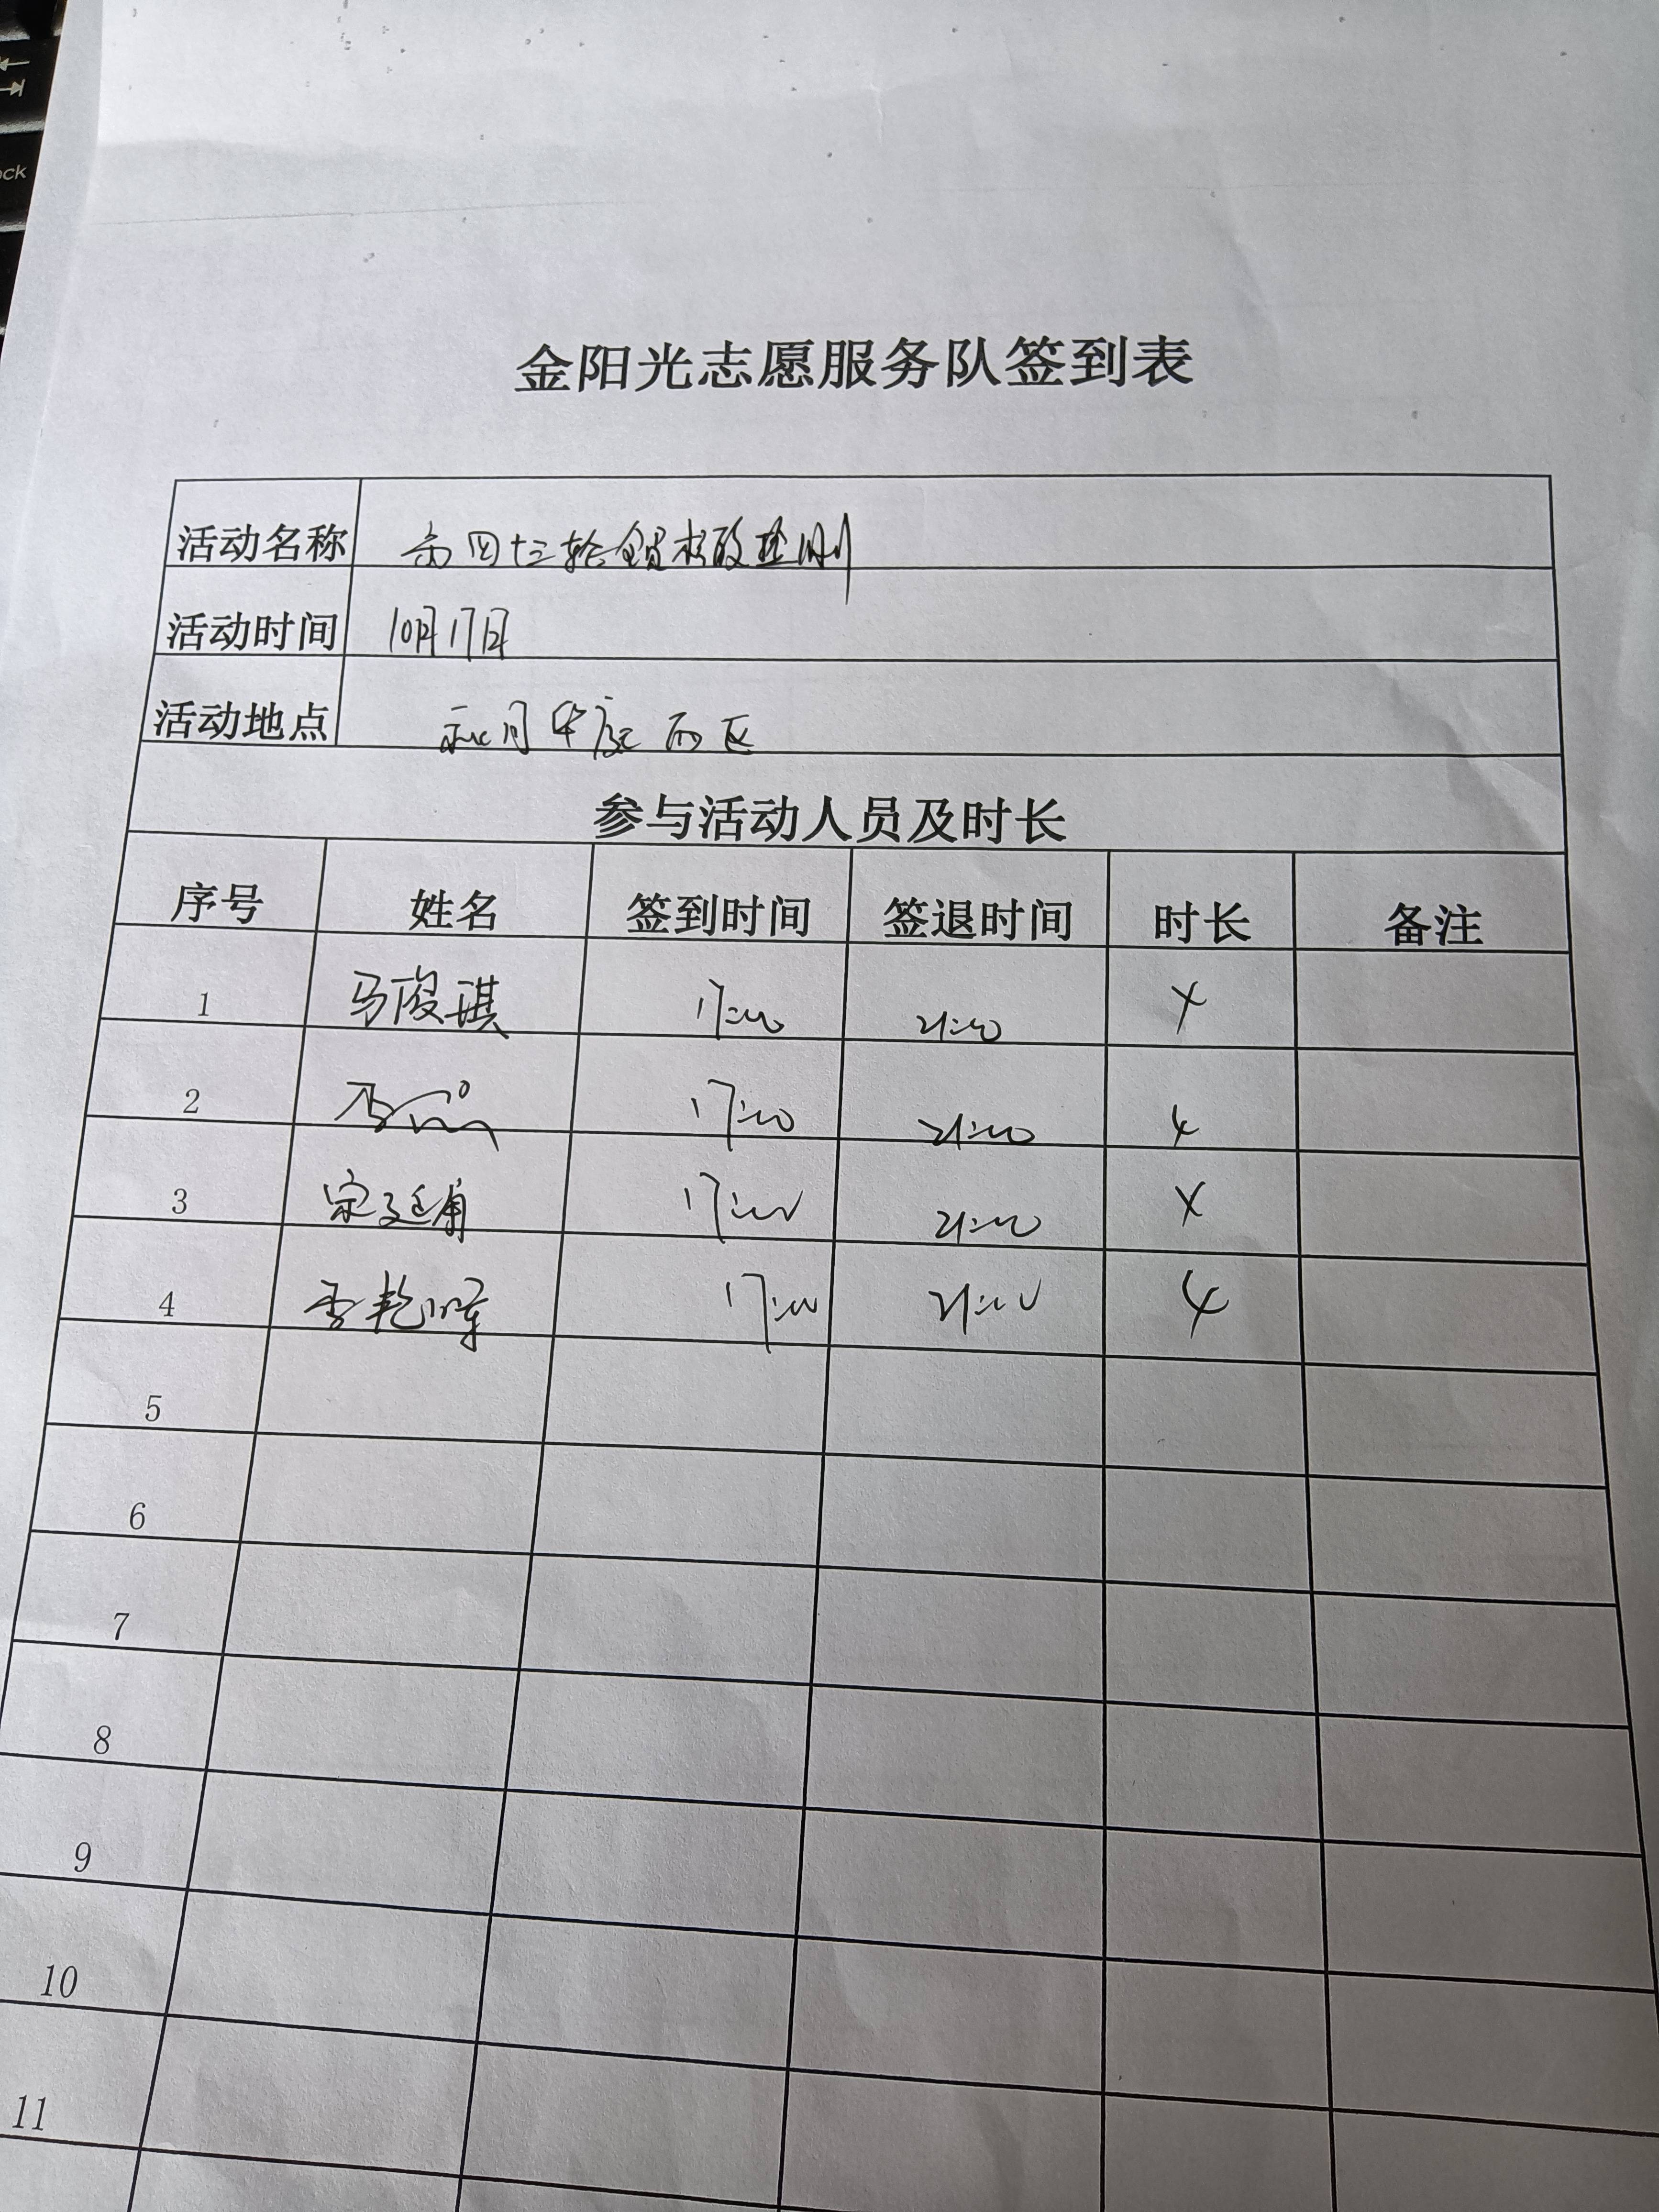 金阳光志愿服务队签到表
活动名称 第四十三轮全员核酸检测
活动时间 10月17日
活动地点 西区
参与活动人员及时长
序号 姓名 签到时间 签退时间 时长 备注
1 马俊琪 17:00 21:00 4
2 17:00 21:00 4
3 宋廷甫 17:00 21:00 4
4 李艳晖 17:00 21:00 4
5
6
7
8
9
10
11